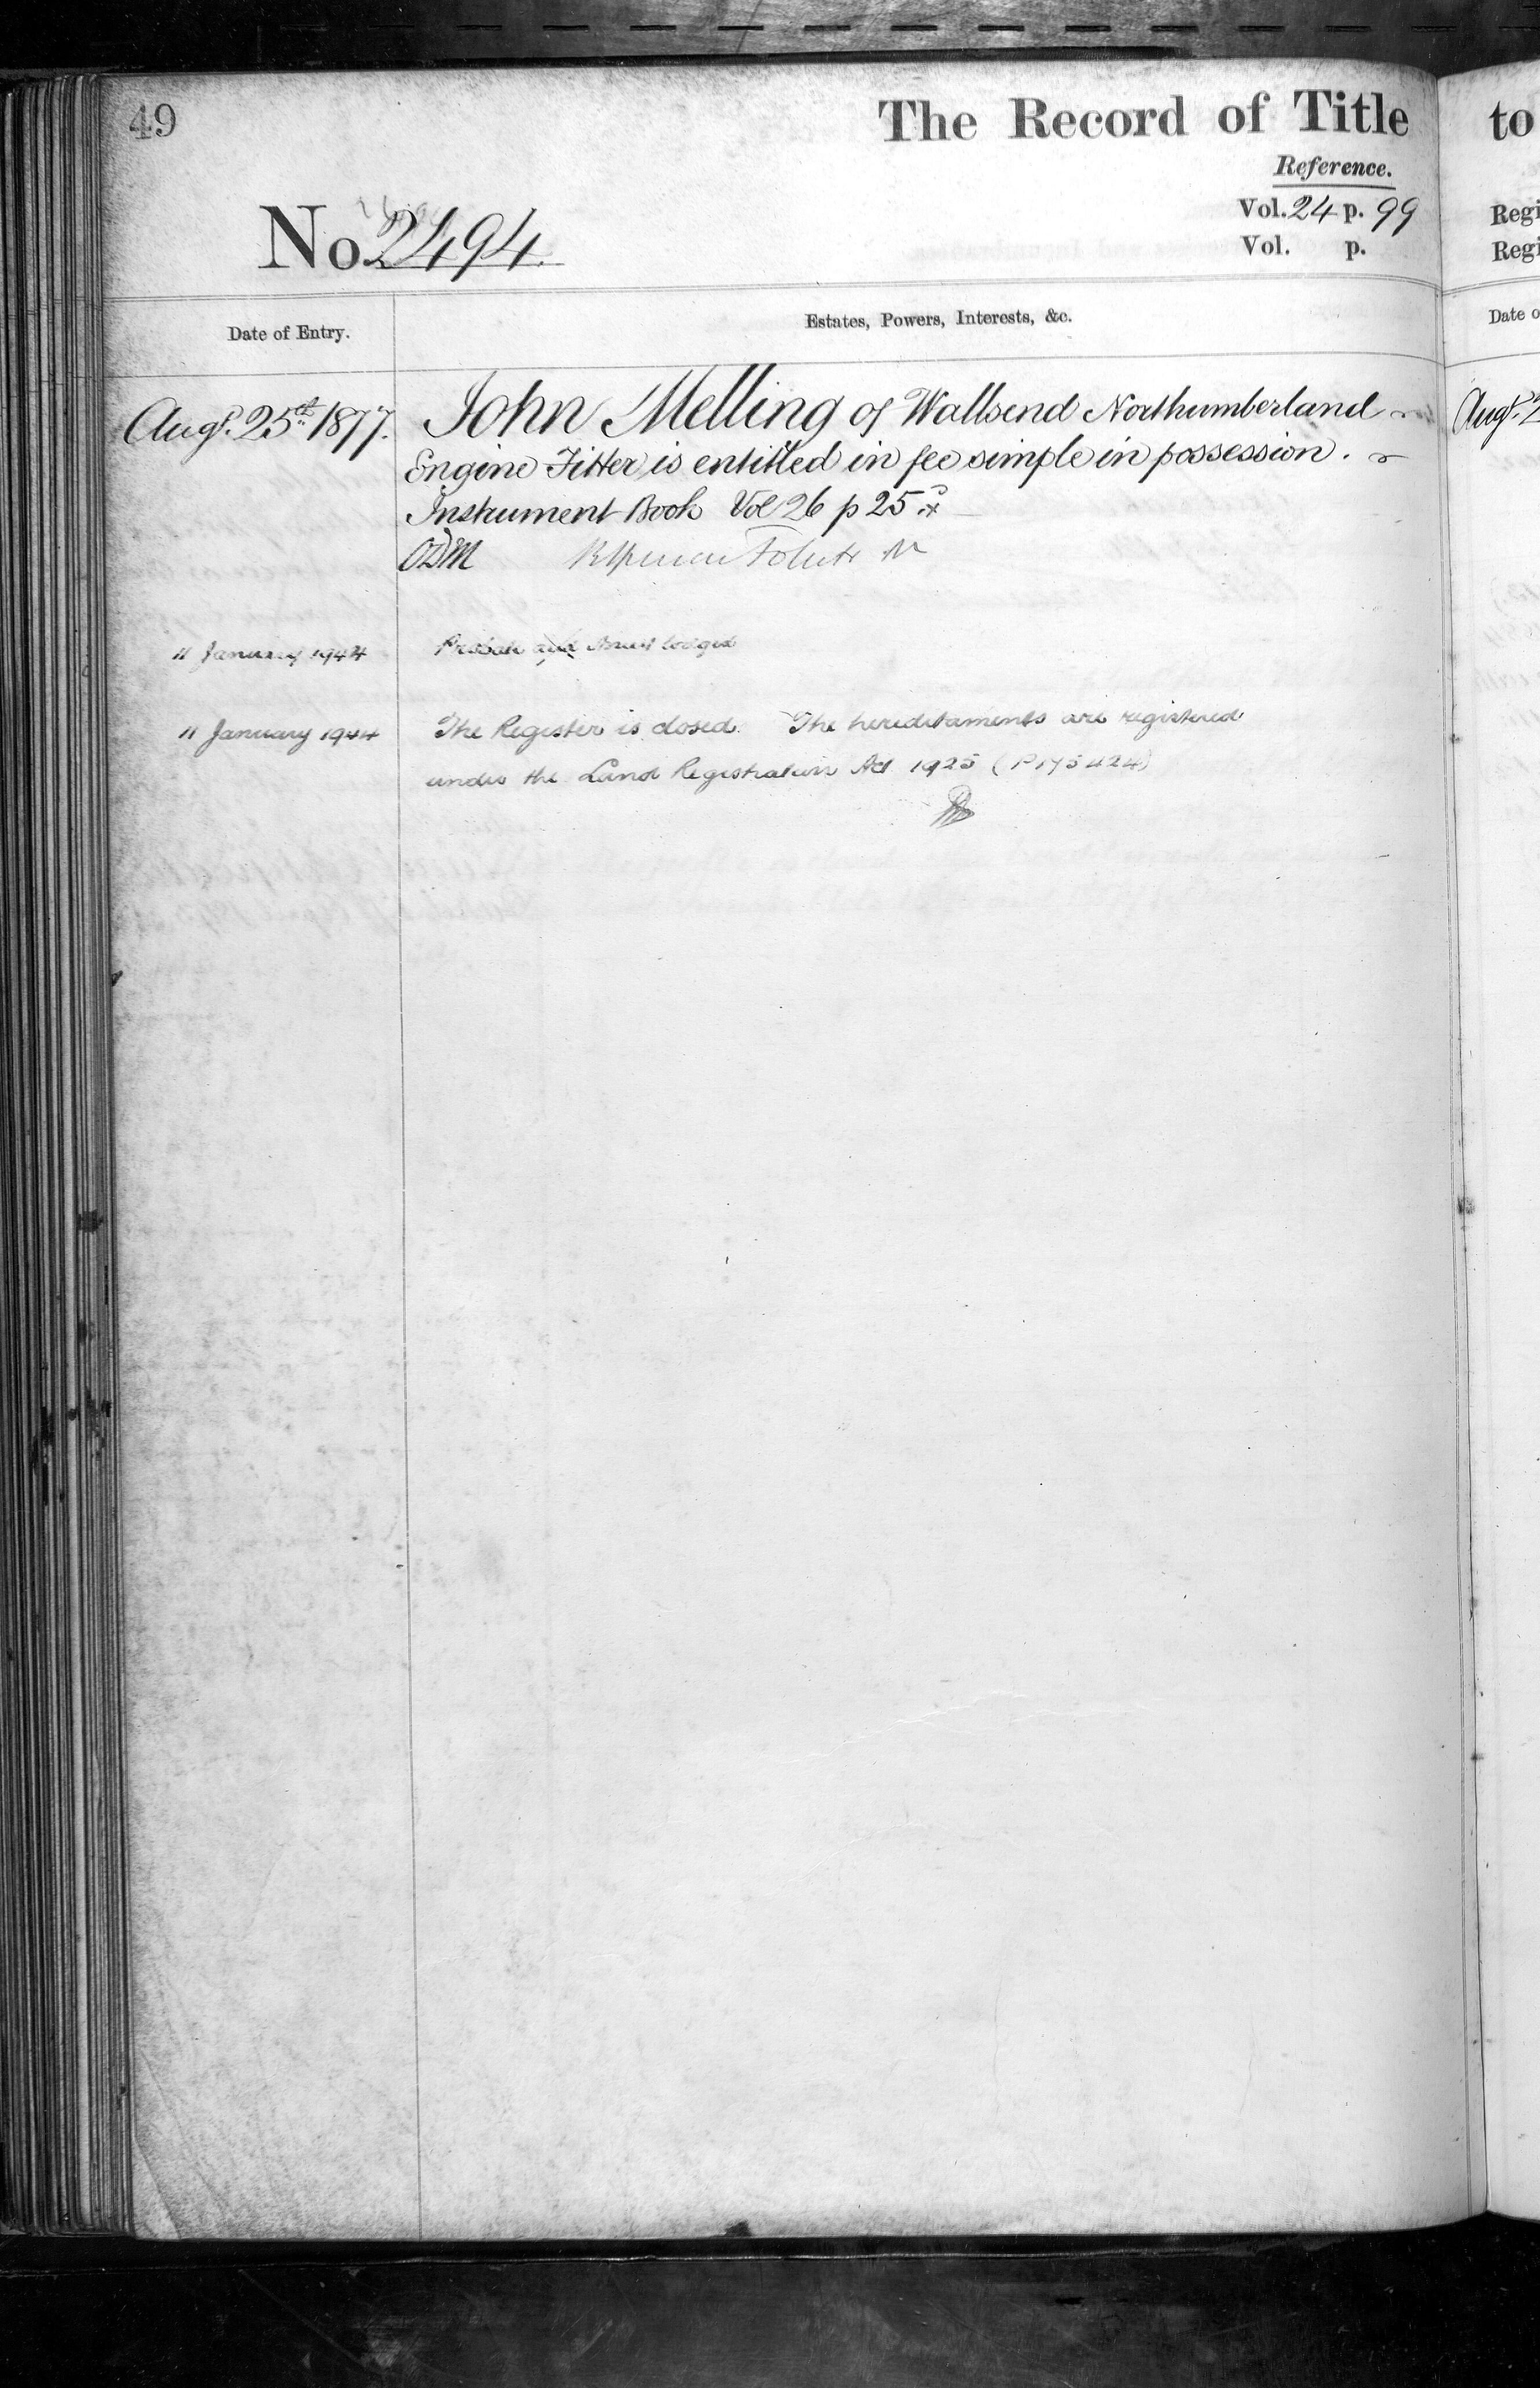 49
The Record of Title
Reference.
Vol. 24 p. 99
Vol. p.
No 2494.
Date of Entry.
Estates, Powers, Interests, &c.
Augt. 25th 1877.
John Melling of Wallsend Northumberland
Engine Fitter is entitled in fee simple in possession.
Instrument Book Vol 26 p 25
ODM
11 January 1944
Probate lodged
11 January 1944
The Register is closed. The hereditaments are registered
under the Land Registration Act 1925 (P175424)
to
Regi
Regi
Date o
Augt. 2